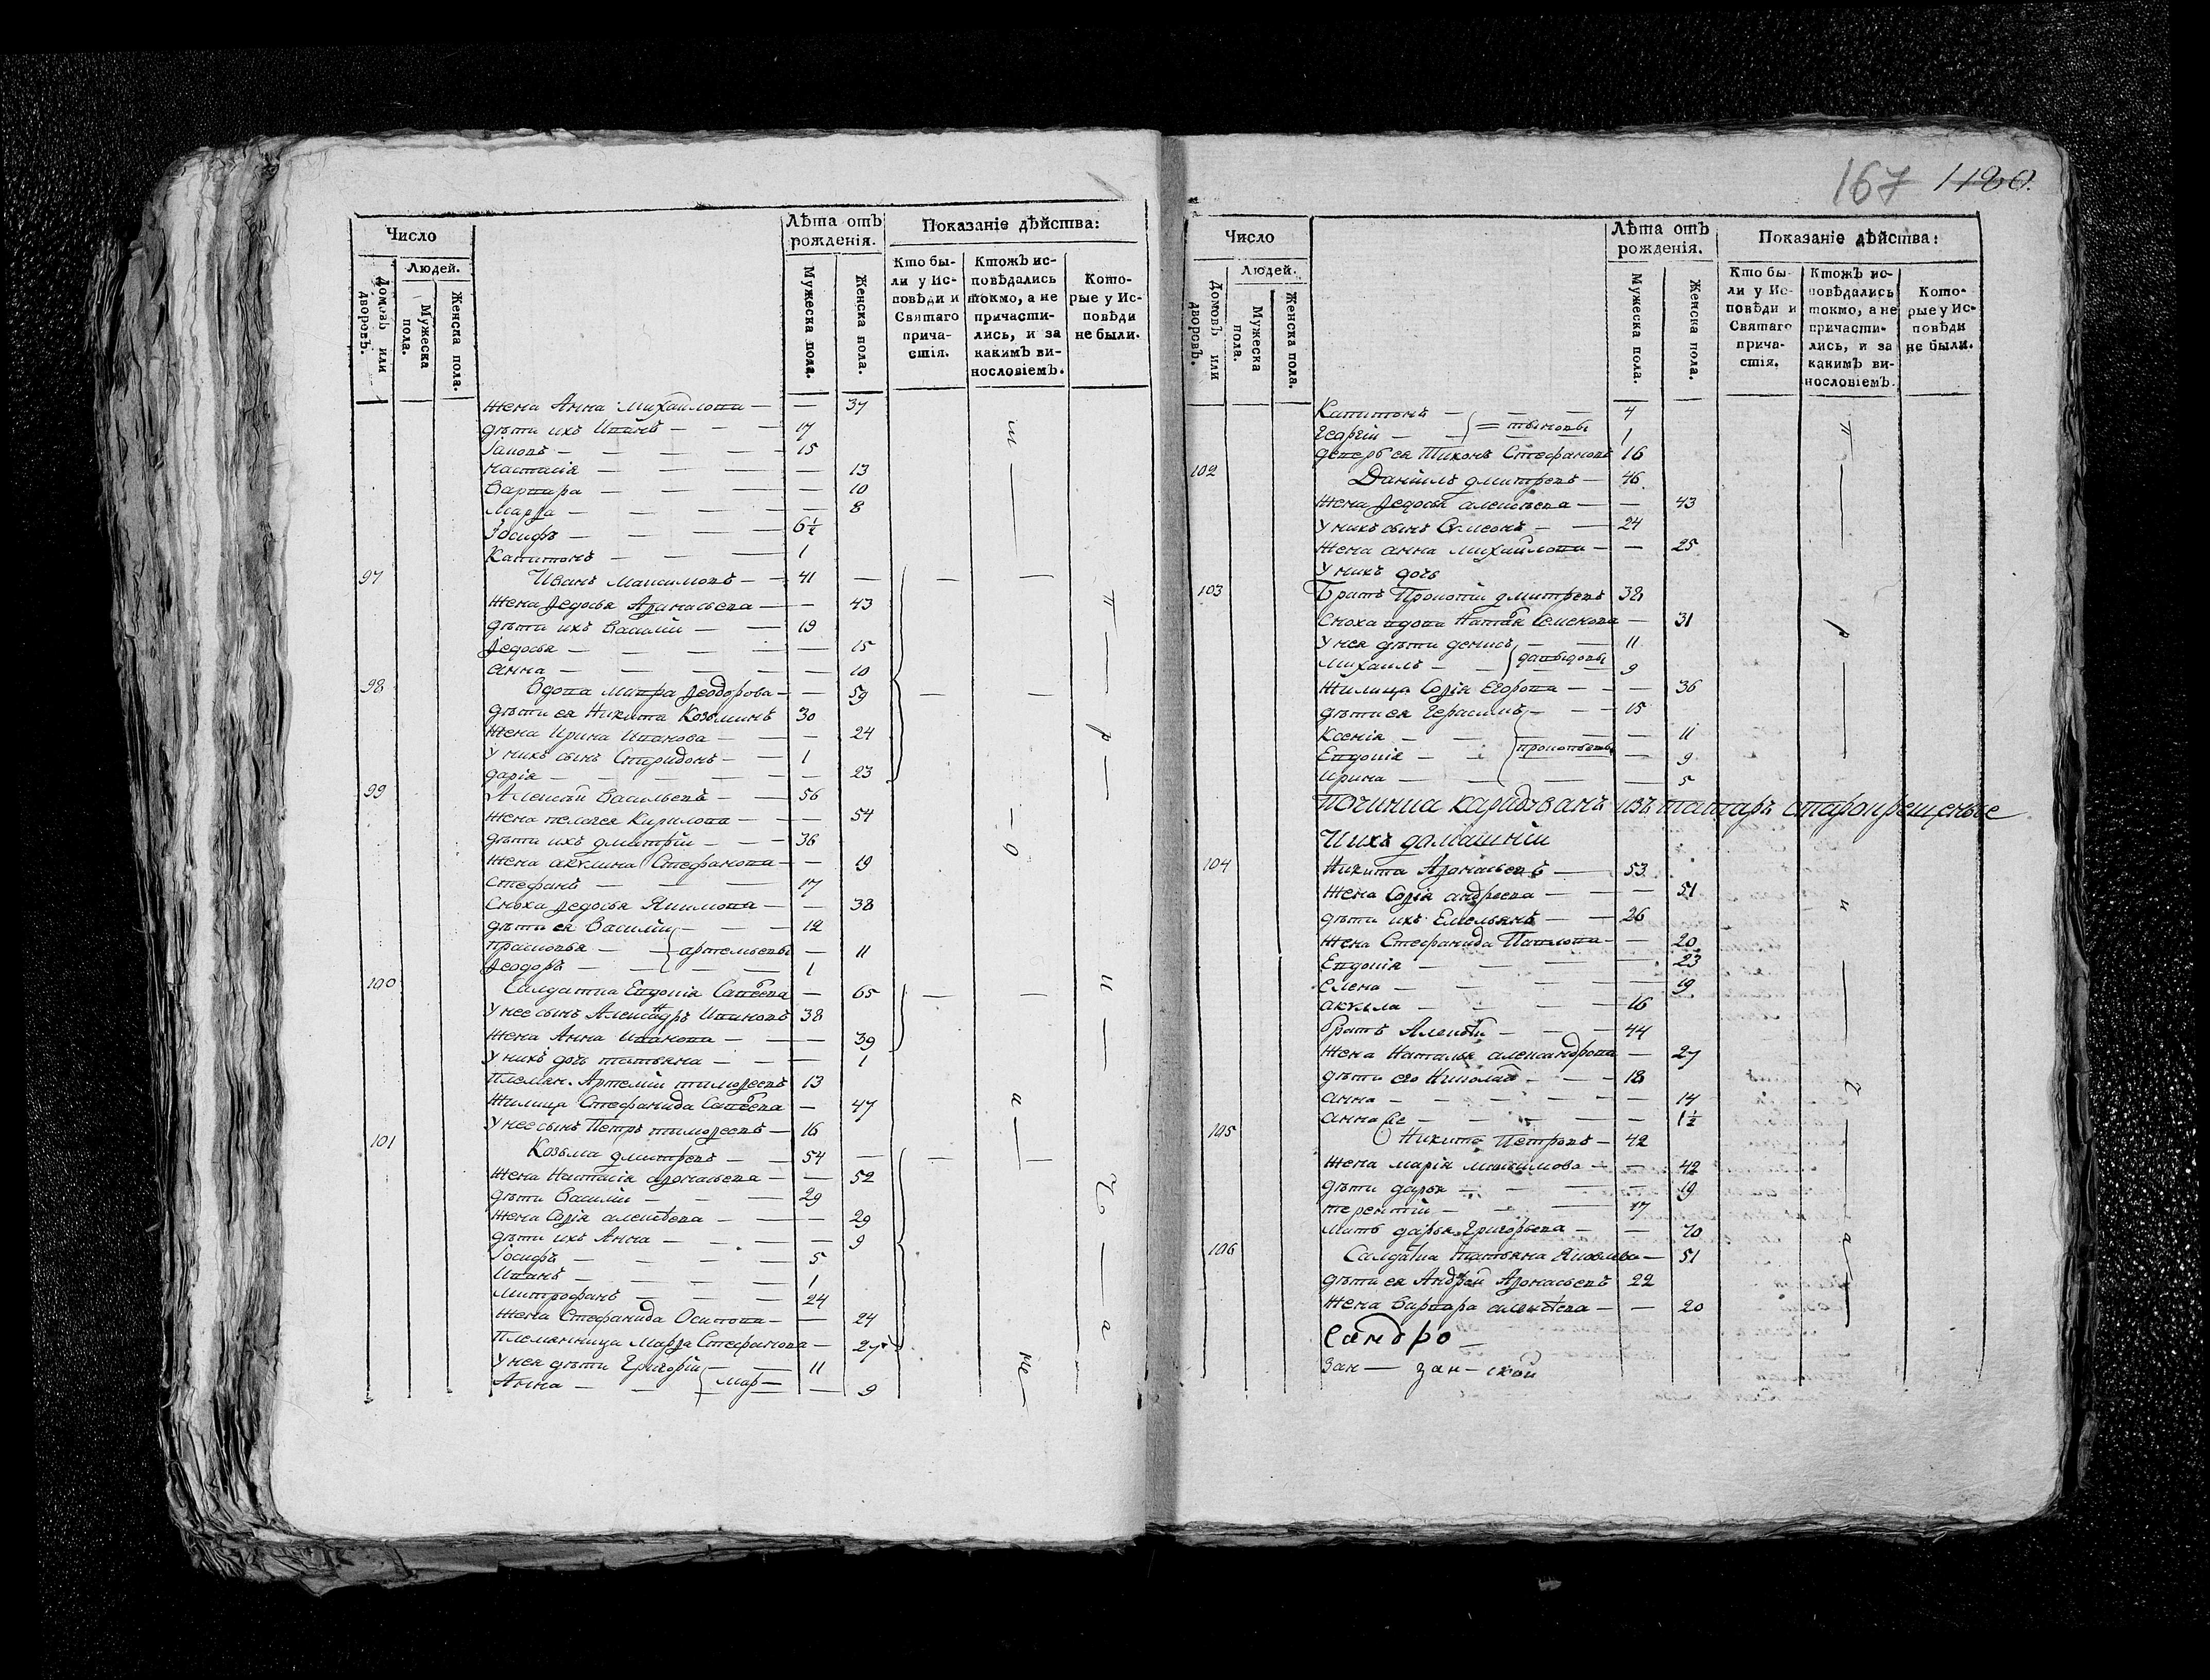 Число
Лѣта отъ рожденія.
Показаніе дѣйства:
Людей.
Домовъ или дворовъ.
Мужеска пола.
Женска пола.
Мужеска пола.
Женска пола.
Кто были у Исповѣди и Святаго причастія.
Ктожъ исповѣдались токмо, а не причастились, и за какимъ винословіемъ.
Которые у Исповѣди не были.
жена Анна Михайлова — — 37
дѣти ихъ Иванъ — — — 17
Іаковъ — — — — — 15
настасія — — — — 13
Варвара — — — — 10
Марѳа — — — — — 8
Іосифъ — — — — 6½
Капитонъ — — — 1
97 Иванъ Максимовъ — — 41 — — —
жена Ѳедосья Аѳанасьева — — 43
дѣти ихъ Василій — — 19
Ѳедосья — — — — — 15
анна — — — — — 10
98 Вдова Мавра Ѳеодорова — — 59 — —
дѣти ея Никита Козьминъ 30
жена Ирина Иванова — — — 24
у нихъ сынъ Спиридонъ — — 1
дарія — — — — — 23
99 Алексѣй Васильевъ — — 56
жена пелагея Кирилова — — — 54
дѣти ихъ дмитрій — — — 36
жена акулина Стефанова — — 19
Стефанъ — — — 17
Сноха Ѳедосья Якимова — — 38
дѣти ея Василій — — — 12
прасковья — — артемьевы — 11
Ѳеодоръ — — — — 1
100 Салдатка Евдокія Савѣева — 65 — —
у нее сынъ Александръ Ивановъ 38
жена Анна Иванова — — — 39
у нихъ дочь татьяна — — — 1
племян. Артемій тимоѳеевъ 13
жилица Стефанида Савѣева — 47
у нее сынъ Петръ тимоѳеевъ — 16
101 Козьма дмитревъ — — 54 — — —
жена Настасія аѳонасьева — — 52
дѣти Василій — — — 29
жена Соѳія алексѣева — — — 29
дѣти ихъ Анна — — — — 9
Іосифъ — — — — 5
Иванъ — — — — 1
Митрофанъ — — — 24
жена Стефанида Осипова — — 24
племянница Марѳа Стефанова — 27
у нея дѣти Григорій — — 11
Анна — — мар — — 9
167 1180.
Число
Лѣта отъ рожденія.
Показаніе дѣйства:
Людей.
Домовъ или дворовъ.
Мужеска пола.
Женска пола.
Мужеска пола.
Женска пола.
Кто были у Исповѣди и Святаго причастія.
Ктожъ исповѣдались токмо, а не причастились, и за какимъ винословіемъ.
Которые у Исповѣди не были.
Капитонъ — — — 4
Георгій — — 1
деверь ея Тихонъ Стефановъ 16
102 Даніилъ дмитревъ — 46
жена Ѳедосья алексѣева — — 43
у нихъ сынъ Сѵмеонъ — — 24
жена анна михайлова — — 25
у нихъ дочь
103 Братъ Прокопій дмитревъ 38
Сноха вдова Наталья Семенова — 31
у нея дѣти денисъ — — 11
Михаилъ — — давыдовы 9
жилица Соѳія Егорова — — — 36
дѣти ея Герасимъ — — — 15
Ксенія — — — — 11
Евдокія — — прокопьевы — 9
ирина — — — — 5
починка карадувань изъ татаръ старокрещеные
и ихъ домашніи
104 Никита Аѳонасьевъ — 53
жена Соѳія андреева — — — 51
дѣти ихъ Емельянъ — — 26
жена Стефанида Павлова — — 20
Евдокія — — — — 23
елена — — — — 19
акѵла — — — — 16
братъ Алексѣй — — — 44
жена Наталья александрова — 27
дѣти его Николай — — — 18
анна — — — — — 14
анна — — — — 1½
105 Никита Петровъ — 42
жена марія максимова — — 42
дѣти дарья — — — — 19
терентій — — — 17
мать дарья Григорьева — — 70
106 Салдатка татьяна Яковлева — 51
дѣти ея Андрей Аѳонасьевъ 22
жена варвара алексѣева — — 20